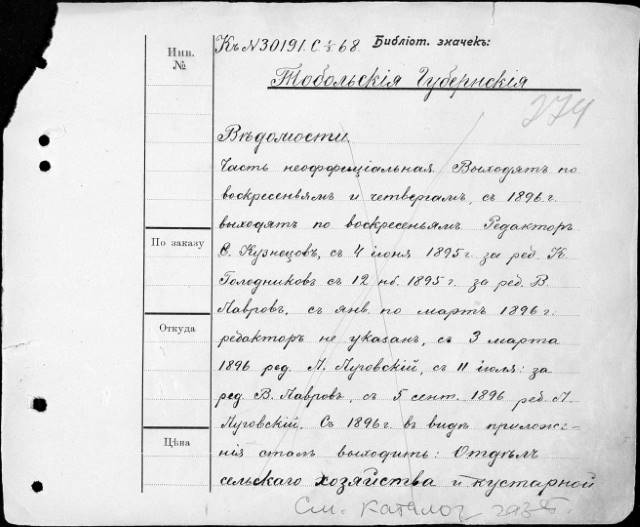 Инв. №
По заказу
Откуда
Цѣна
Къ N 30191. С 1/2 68. Библіот. значек:
Тобольскія Губернскія
274
Вѣдомости.
Часть неоффиціальная. Выходятъ по
воскресеньямъ и четвергамъ, с 1896 г.
выходятъ по воскресеньямъ. Редакторъ
Кузнецовъ, съ 4 іюня 1895 г. за ред. К
Голодниковъ съ 12 нб. 1895 г. за ред. В.
Лавровъ, съ янв. по мартъ 1896 г.
редакторъ не указан, съ 3 марта
1896 ред. Луговскій, съ 11 іюля: за
ред. В. Лавровъ, съ 5 сент. 1896 ред.
Луговскій. Съ 1896 г. въ видѣ приложе-
нія сталъ выходить: Отдѣлъ
сельскаго хозяйства и кустарной
См. каталог